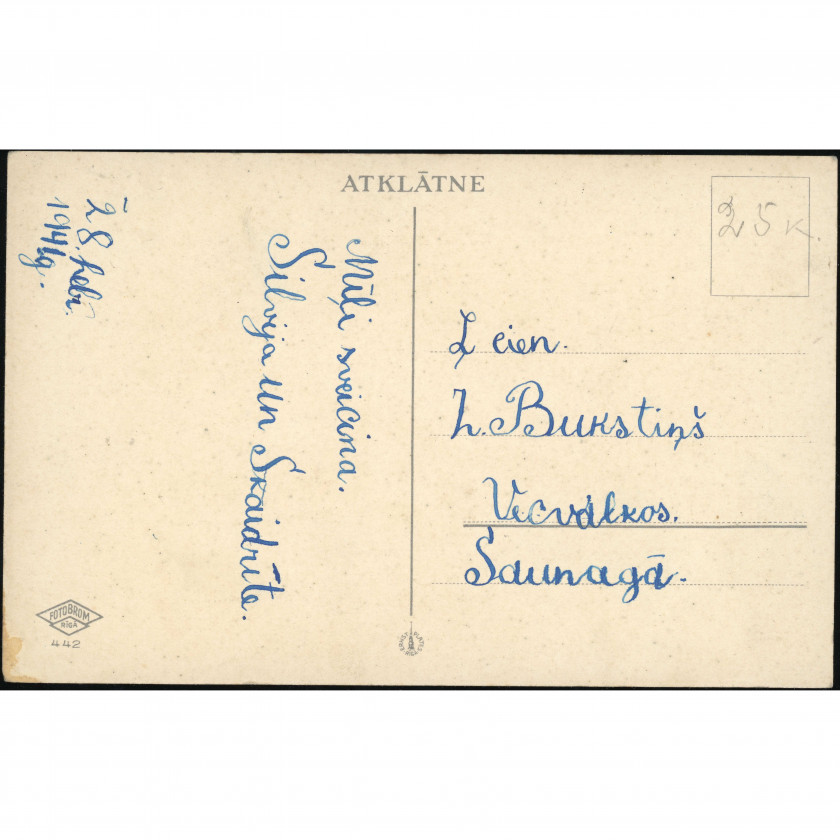 ATKLĀTNE
25 K.
28. febr.
1941g.
Mīļi sveicina.
Silvija un Skaidrīte.
L cien.
Z. Bukstiņš
Vecvalkos.
Saunagā.
FOTOBROM
RĪGĀ
442